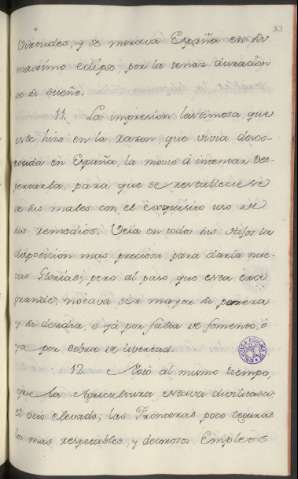 y se mirava España en su
maximo eclipse por la tenaz duracion
de su sueño.
11. La impresion lastimosa que
este hizo en la razon que vivia desco-
nocida en España, la movió á intentar des-
pertarla, para que se restableciese
a sus males con el exquisito uso de
sus remedios. Veía en todos sus Hijos la
disposicion mas preciosa para darla nue-
vas Glorias; pero al paso que esta era
grande, notava ser mayor su pereza
y su desidia, ó yá por falta de fomento, ó
yá por sobra de livertad.
12. Notó al mismo tiempo,
que la Agricultura estava
el ocio elevado; las Fronteras poco seguras
los mas respetables, y decorosos Empleos